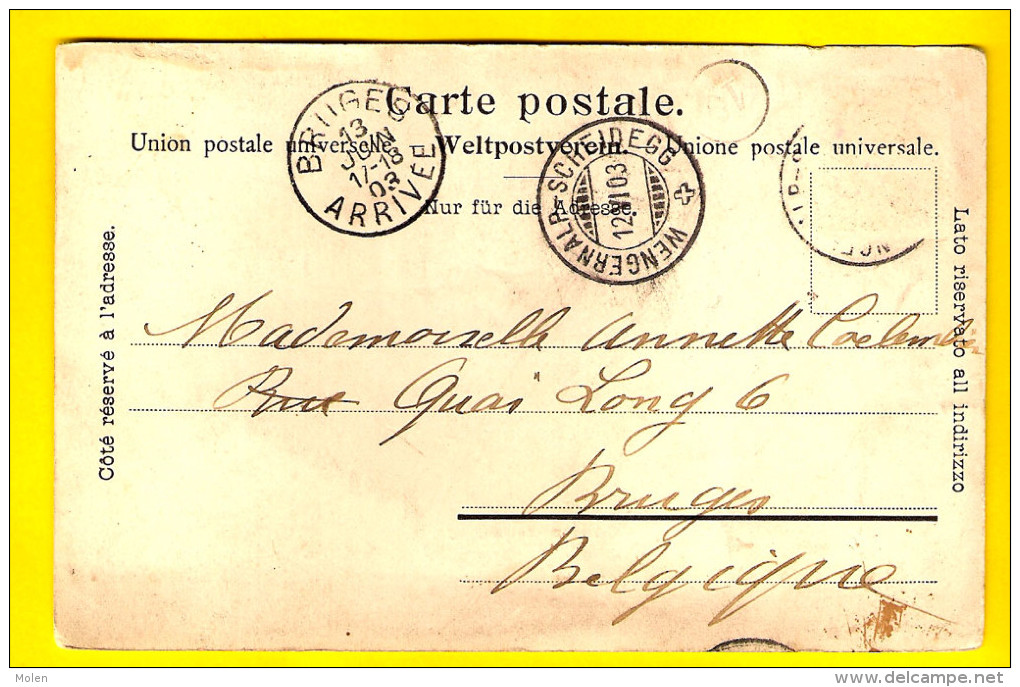 Carte postale.
Union postale universelle. Weltpostverein. Unione postale universale.
Nur für die Adresse.
BRUGES
13
JUIN
17-18
03
ARRIVÉE
WENGERNALP-SCHEIDEGG
12.VI 03
Côté réservé à l'adresse.
Lato riservato all indirizzo
Mademoiselle Annette
Rue Quai Long 6
Bruges
Belgique
Molen
www.delcampe.net